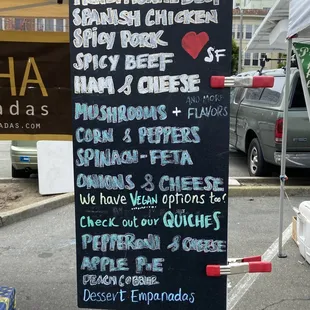 SPANISH CHICKEN
SPICY PORK
SPICY BEEF
SF
HAM & CHEESE
AND MORE
MUSHROOMS + FLAVORS
CORN & PEPPERS
SPINACH-FETA
ONIONS & CHEESE
WE have VEGAN options too!
Check out our QUICHES
PEPPERONI & CHEESE
APPLE PIE
PEACH COBBLER
Dessert Empanadas
HA
nadas
ADAS.COM